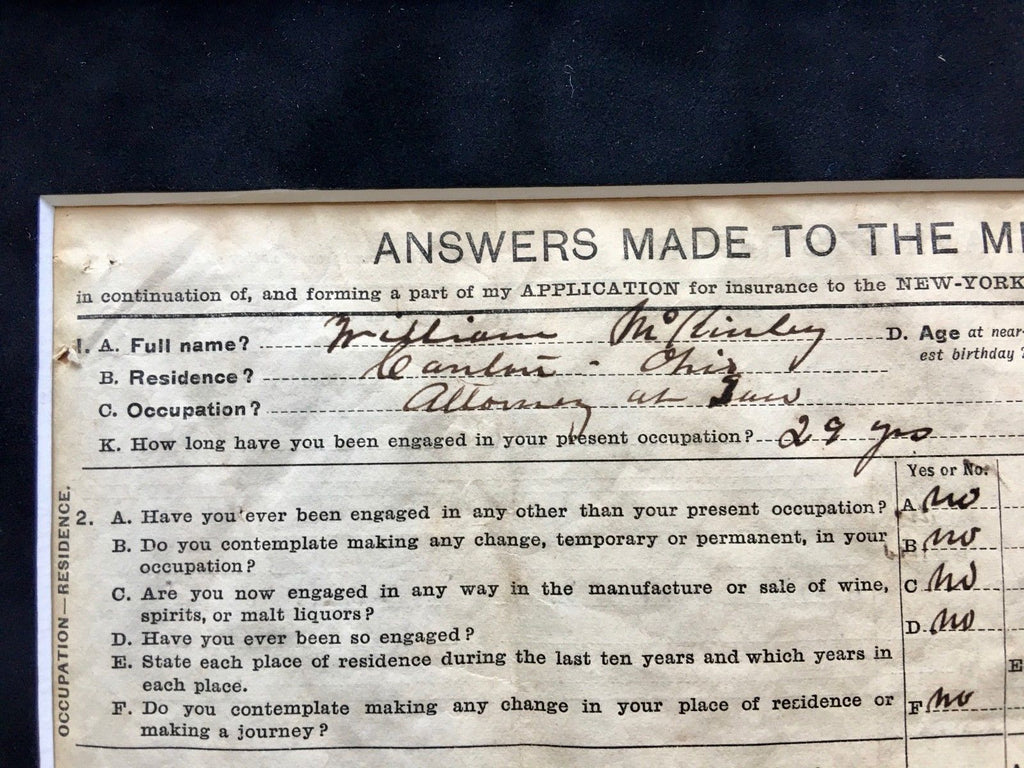 ANSWERS MADE TO THE M
in continuation of, and forming a part of my APPLICATION for insurance to the NEW-YORK
1. A. Full name? William McKinley D. Age at near-
est birthday?
B. Residence? Canton - Ohio
C. Occupation? Attorney at Law
K. How long have you been engaged in your present occupation? 29 yrs
Yes or No.
2. A. Have you ever been engaged in any other than your present occupation? A no
B. Do you contemplate making any change, temporary or permanent, in your B no
occupation?
C. Are you now engaged in any way in the manufacture or sale of wine, C no
spirits, or malt liquors?
D. Have you ever been so engaged? D no
E. State each place of residence during the last ten years and which years in E
each place.
F. Do you contemplate making any change in your place of residence or F no
making a journey?
OCCUPATION—RESIDENCE.